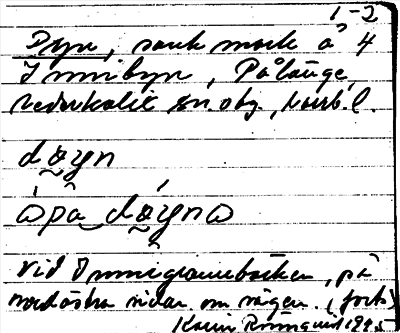 1-2
Dyn, sank mark å 4
Innibyn, Pålänge,
Nederkalix sn. obg., Norrb. l.
dø̯yn
ɷpå dø̯ynɷ
vid Innigrannebäcken, på
nordöstra sidan om vägen. (forts)
Karin Rönnquist 1925